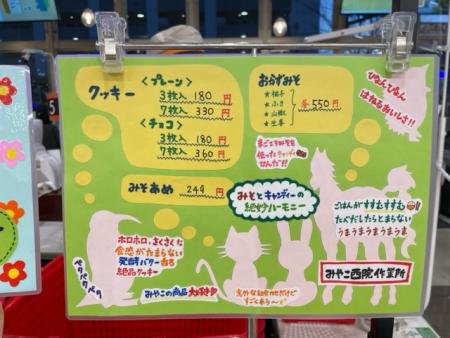 クッキー
〈プレーン〉
3枚入 180円
7枚入 330円
〈チョコ〉
3枚入 180円
7枚入 360円
みそあめ 249円
おかずみそ
★柚子
★山椒
★生姜
各550円
ぴょんぴょん
はねるおいしさ!!
まごころみそを
使ったキャンディー
なんだ!!
みそとキャンディーの
絶妙ハーモニー
ごはんがすすむすすむ
たべだしたらとまらない
うまうまうまうまうま
みやこ西院作業所
ホロホロ、さくさくに
食感がたまらない
発酵バター香る
絶品クッキー
ペタペタペタ
みやこの商品大好き
意外な組合せだけど
すごくあう〜
5